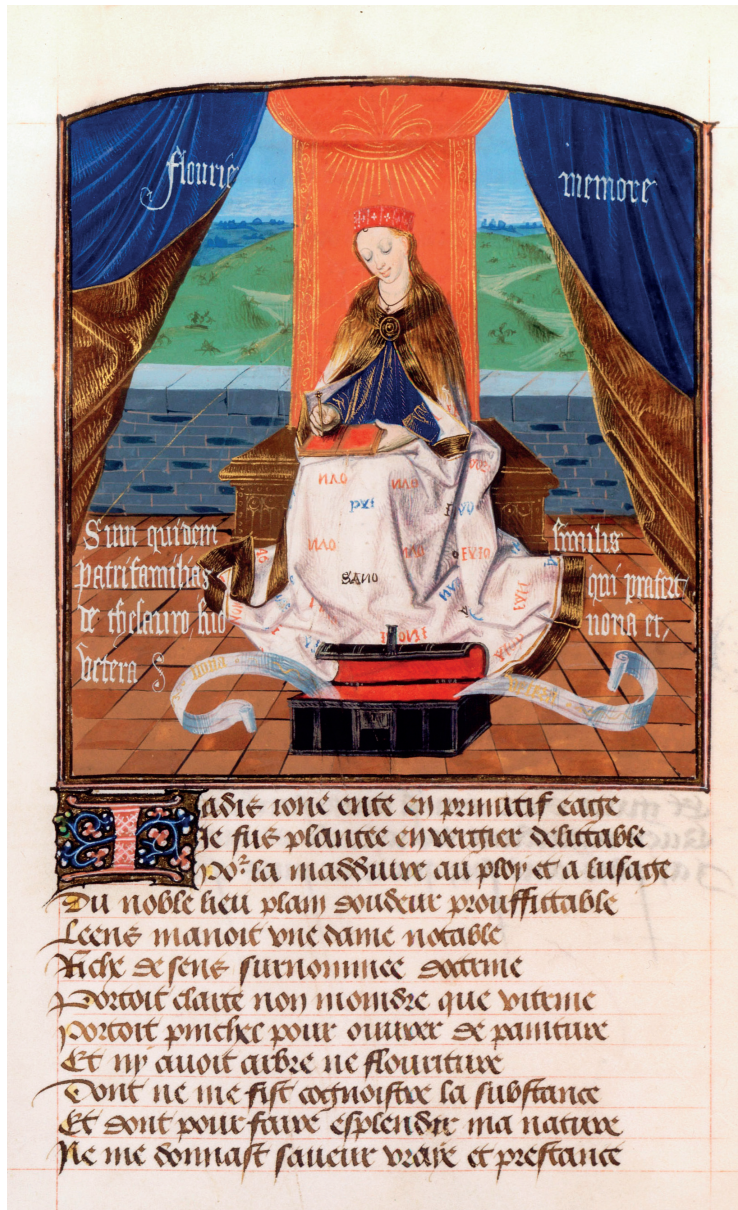 flourie memore
Sum quidem similis
patrifamilias qui profert
de thesauro suo nova et
vetera
nova
Iadis ione ente en primitif eage
Je fus plantee en vergier delictable
Por la madduire au ploy et a lusage
Du noble lieu plain doudeur prouffittable
Leens manoit vne dame notable
Riche de sens surnommee doctrine
Portoit clarte non moindre que vitrine
Portoit pinchel pour ouurer de painture
Et ny auoit arbre ne flouriture
Dont ne me fist cognoistre la substance
Et dont pour faire esplendir ma nature
Ne me donnast saueur vraye et prestance